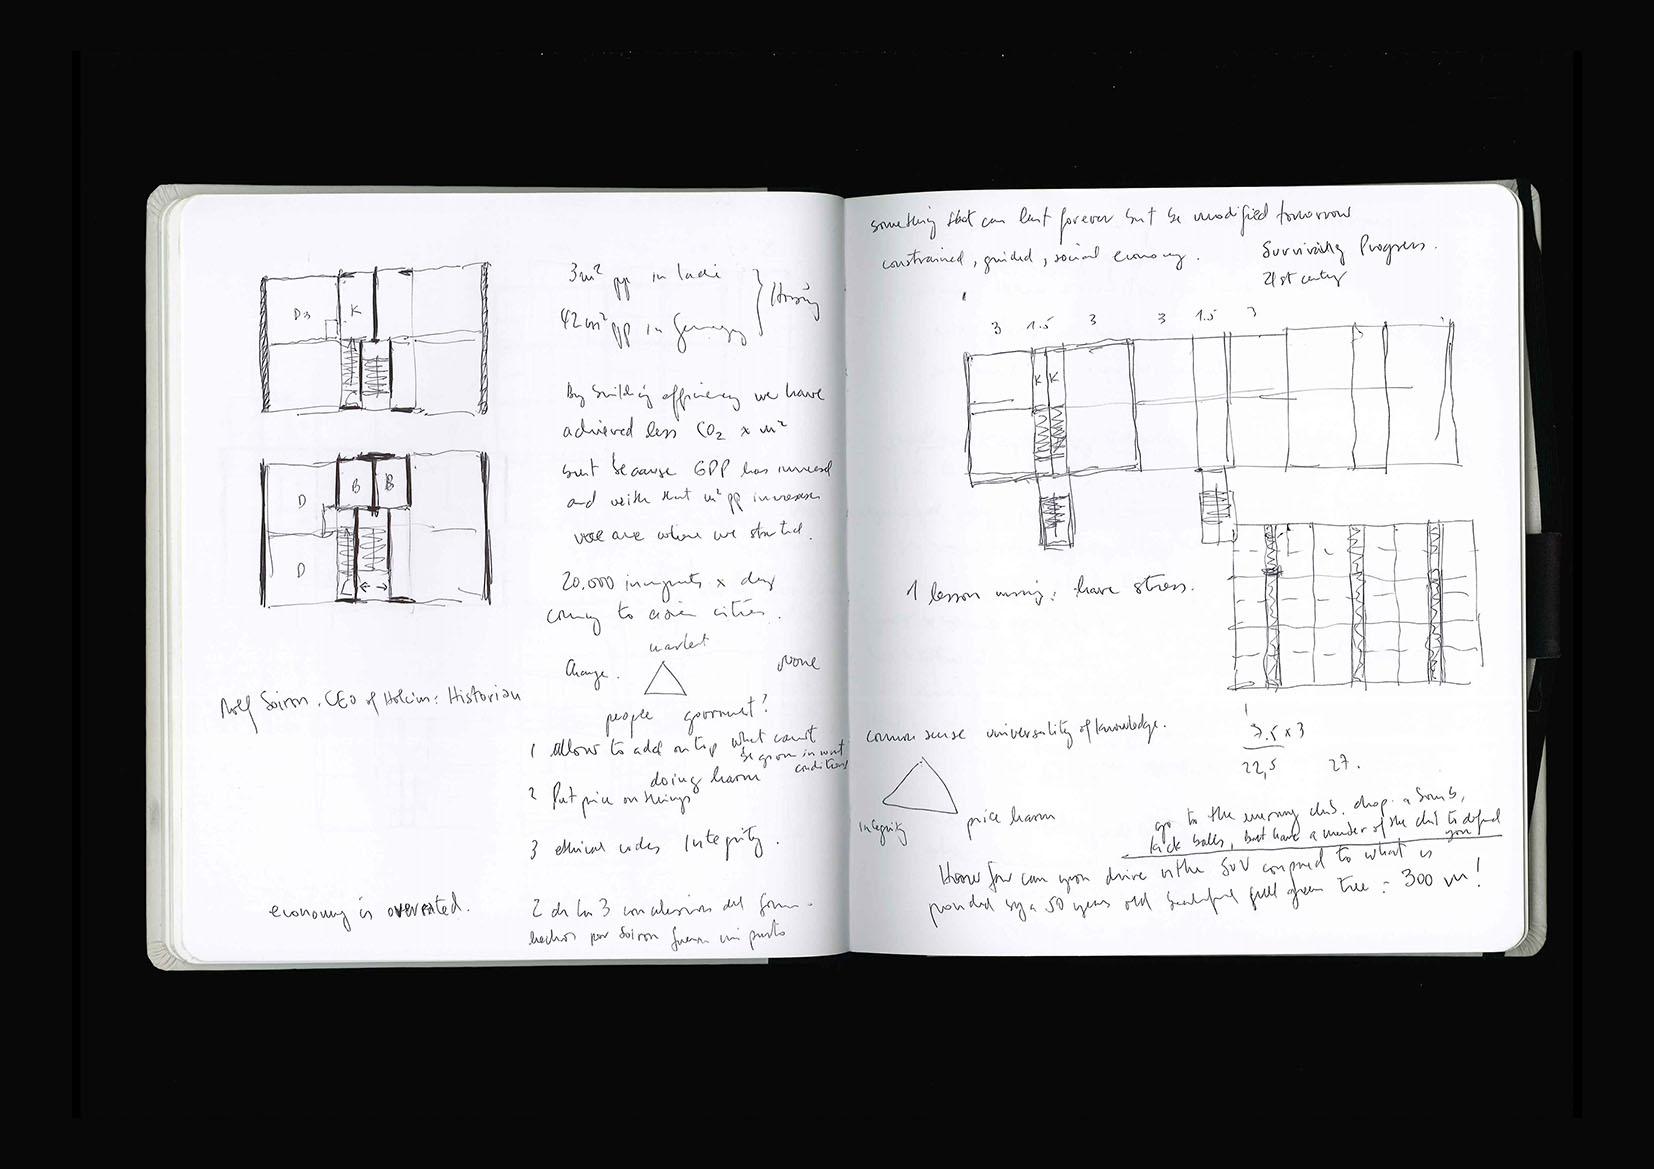 D3 K
D B B
D
3m² pp in
42m² pp in Germany
Housing
By building efficiency we have
achieved less CO2 x m²
but because GDP has increased
and with that m² pp increases
we are where we started.
20.000 x day
coming to cities.
market
change. None
people government?
1 allow to add on top what can't
be grown in want
conditions
doing harm
2 Put price on things
3 ethical codes Integrity.
Rolf Soiron. CEO of Holcim: Historian
economy is overrated.
2 de las 3 conclusiones del forum
hechos por Soiron fueron mi punto
something that can last forever but be modified tomorrow
constrained, guided, social economy.
Surviving Progress.
21st century
3 1.5 3 3 1.5 3
K K
1 lesson : have stress.
common sense universality of knowledge.
integrity price harm
7.5 x 3
22,5 27.
go to the club. drop a bomb,
kick balls, but have a member of the club to defend
you
How far can you drive with the SUV compared to what is
provided by a 50 years old beautiful full green tree = 300 m!